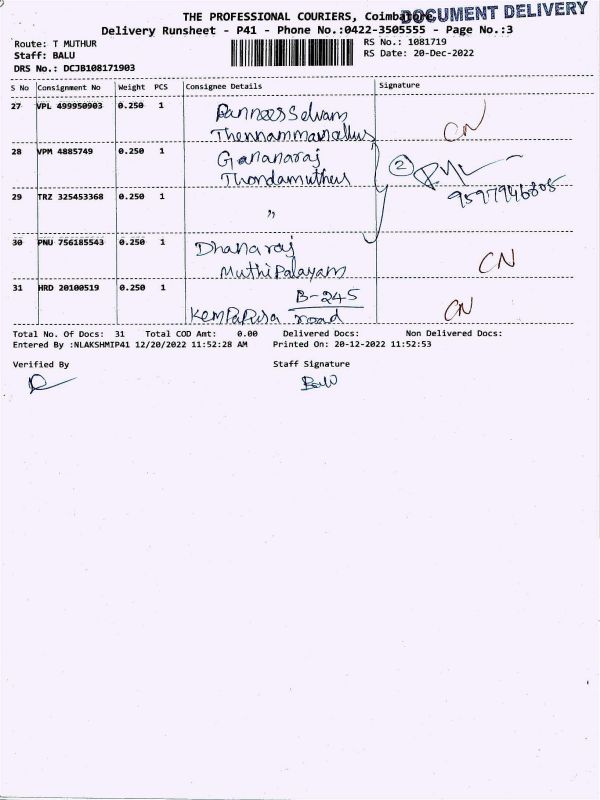 THE PROFESSIONAL COURIERS, Coimbatore.
DOCUMENT DELIVERY
Delivery Runsheet - P41 - Phone No.:0422-3505555 - Page No.:3
Route: T MUTHUR
RS No.: 1081719
Staff: BALU
RS Date: 20-Dec-2022
DRS No.: DCJB108171903
S No Consignment No Weight PCS Consignee Details Signature
27 VPL 499950903 0.250 1
CN
28 VPM 4885749 0.250 1 Gananaraj
Thondamuthur
2
29 TRZ 325453368 0.250 1 "
30 PNU 756185543 0.250 1 Dhanaraj
Muthipalayam
CN
31 HRD 20100519 0.250 1 B-245
road
CN
Total No. Of Docs: 31 Total COD Amt: 0.00 Delivered Docs: Non Delivered Docs:
Entered By :NLAKSHMIP41 12/20/2022 11:52:28 AM Printed On: 20-12-2022 11:52:53
Verified By Staff Signature
Balu